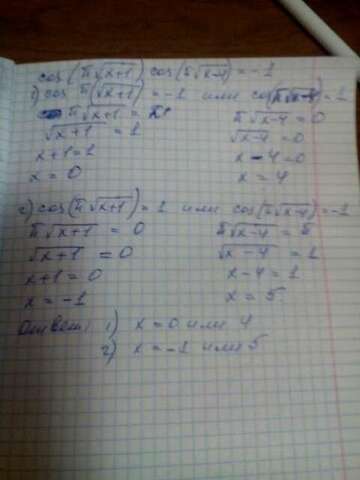 cos(π√x+1) cos(π√x-4) = -1
1) cos π(√x+1) = -1 или cos(π√x-4) = 1
π√x+1 = π π√x-4 = 0
√x+1 = 1 √x-4 = 0
x+1 = 1 x-4 = 0
x = 0 x = 4
2) cos(π√x+1) = 1 или cos(π√x-4) = -1
π√x+1 = 0 π√x-4 = π
√x+1 = 0 √x-4 = 1
x+1 = 0 x-4 = 1
x = -1 x = 5
Ответ: 1) x = 0 или 4
2) x = -1 или 5